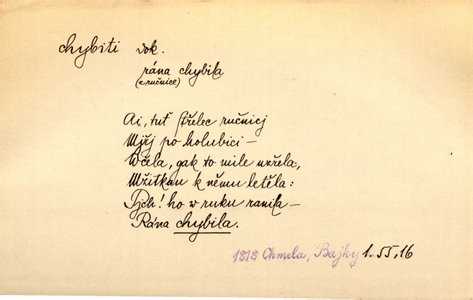 chybiti dok.
rána chybila
(z ručnice)
Ai, tuť střelec ručnicj
Mjřj po holubici —
Wčela, gak to mile uzřela,
Mžitkau k němu letěla:
Pjch! ho w ruku ranila —
Rána chybila.
1818 Chmela, Bajky 1.55,16